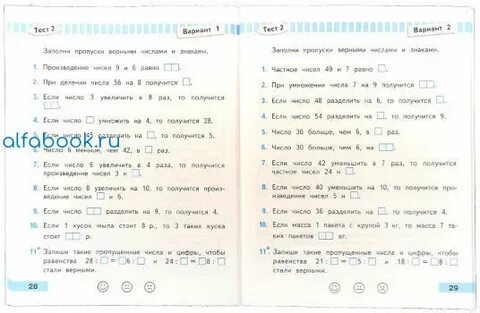 Тест 2
Вариант 1
Заполни пропуски верными числами и знаками.
1. Произведение чисел 9 и 6 равно □□.
2. При делении числа 56 на 8 получится □.
3. Если число 3 увеличить в 8 раз, то получится
□□.
4. Если число □ умножить на 4, то получится 28.
5. Если число 45 разделить на □, то получится 5.
6. Число 6 меньше, чем 42, в □ раз.
7. Если число 6 увеличить в 4 раза, то получится
произведение чисел 3 и □.
8. Если число 8 увеличить на 10, то получится произ-
ведение чисел □ и 6.
9. Если число □□ разделить на 9, то получится 4.
10. Если 1 кусок мыла стоит 8 р., то 3 таких куска
стоят □□ р.
11* Запиши такие пропущенные числа и цифры, чтобы
равенства 28 : □ = □6 : □ и 24 : □ = □8 : □
стали верными.
28
alfabook.ru
Тест 2
Вариант 2
Заполни пропуски верными числами и знаками.
1. Частное чисел 49 и 7 равно □.
2. При умножении числа 7 на 9 получится □□.
3. Если число 48 разделить на 6, то получится □.
4. Если число 54 разделить на □, то получится 9.
5. Число 30 больше, чем 5, в □ раз.
6. Число 30 больше, чем 6, на □□.
7. Если число 42 уменьшить в 7 раз, то получится
частное чисел 24 и □.
8. Если число 40 уменьшить на 10, то получится
произведение чисел 5 и □.
9. Если число 36 разделить на □, то получится 4.
10. Если масса 1 пакета с крупой 3 кг, то масса 7 та-
ких пакетов □□ кг.
11* Запиши такие пропущенные числа и цифры, чтобы
равенства 21 : □ = □5 : □ и 18 : □ = □8 : □
стали верными.
29